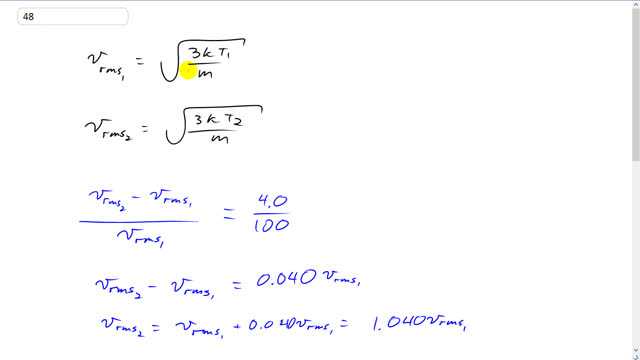 48
v_rms₁ = √(3kT₁/m)
v_rms₂ = √(3kT₂/m)
(v_rms₂ - v_rms₁)/v_rms₁ = 4.0/100
v_rms₂ - v_rms₁ = 0.040 v_rms₁
v_rms₂ = v_rms₁ + 0.040 v_rms₁ = 1.040 v_rms₁